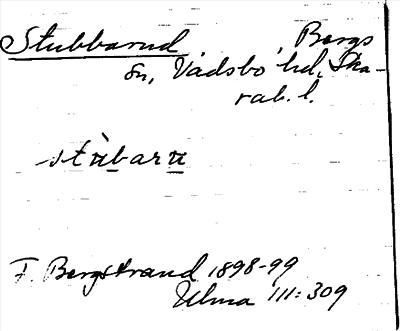 Stubbarud, Bergs
sn, Vadsbo hd, Ska-
rab. l.
stùbaru
F. Bergstrand 1898-99
Ulma 111:309